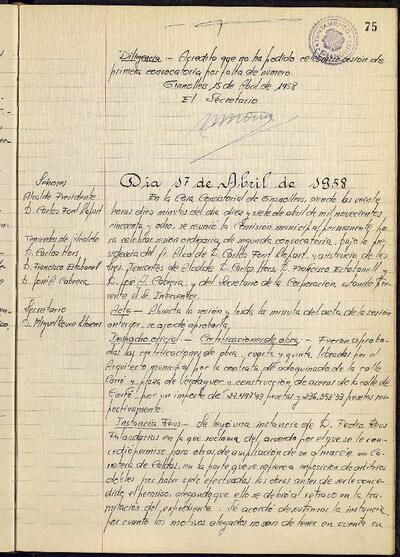 75
AYUNTAMIENTO
Diligencia.- Acredito que no ha podido celebrarse sesión de
primera convocatoria por falta de número.
Granollers 15 de Abril de 1958
El Secretario
Señores
Alcalde Presidente
D. Carlos Font Llopart
Tenientes de Alcalde
D. Carlos Hors
D. Francisco Estabanell
D. José A. Cabrera
Secretario
D. Miguel
Dia 17 de Abril de 1958
En la Casa Consistorial de Granollers, siendo las veinte
horas diez minutos del dia diez y siete de abril de mil novecientos
cincuenta y ocho, se reunió la Comisión municipal permanente pa
ra celebrar sesión ordinaria, de segunda convocatoria, bajo la pre
sidencia del Sr. Alcalde D. Carlos Font Llopart y asistencia de los
Sres. Tenientes de Alcalde D. Carlos Hors, D. Francisco Estabanell y
D. José A. Cabrera, y del Secretario de la Corporación, estando presente
el Sr. Interventor.
Acta - Abierta la sesión y leida la minuta del acta de la sesión
anterior, se acordó aprobarla.
Despacho oficial.- Certificaciones de obra.- Fueron aproba
das las certificaciones de obra, cuarta y quinta, libradas por el
Arquitecto municipal por la contrata de adoquinado de la calle
Corró y plaza de Verdaguer y construcción de aceras de la calle de
Corró, por un importe de 22.487'43 pesetas y 236.358'33 pesetas res
pectivamente.
Instancia Reus - Se leyó una instancia de D. Pedro Reus
Palaudarios en la que reclama del acuerdo por el que se le con
cedió permiso para obras de ampliación de un almacén en Ca
rretera de Caldas, en la parte que se refiere a imposición de arbitrios
dobles por haber sido efectuadas las obras antes de serle conce
dido el permiso, alegando que ello se debió al retraso en la tra
mitación del expediente. Se acordó desestimar la instancia,
por cuanto los motivos alegados no son de tener en cuenta en